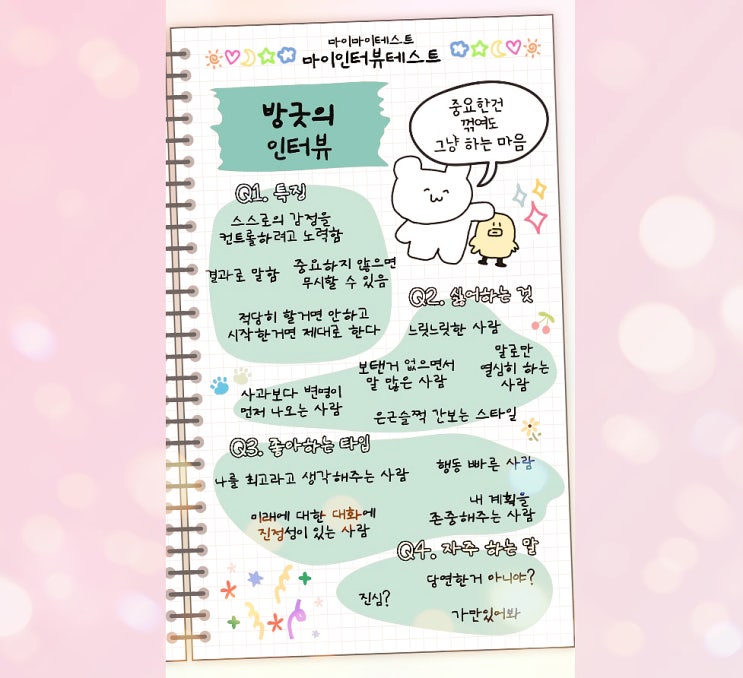 마이마이테스트
마이인터뷰테스트
방긋의
인터뷰
중요한건
꺾여도
그냥 하는 마음
Q1. 특징
스스로의 감정을
컨트롤하려고 노력함
결과로 말함
중요하지 않으면
무시할 수 있음
적당히 할거면 안하고
시작한거면 제대로 한다
Q2. 싫어하는 것
느릿느릿한 사람
보탠거 없으면서
말 많은 사람
말로만
열심히 하는
사람
사과보다 변명이
먼저 나오는 사람
은근슬쩍 간보는 스타일
Q3. 좋아하는 타입
나를 최고라고 생각해주는 사람
행동 빠른 사람
미래에 대한 대화에
진정성이 있는 사람
내 계획을
존중해주는 사람
Q4. 자주 하는 말
당연한거 아니야?
진심?
가만있어봐